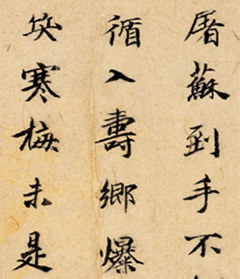 屠蘇到手不
循入壽鄉爆
笑寒梅未是